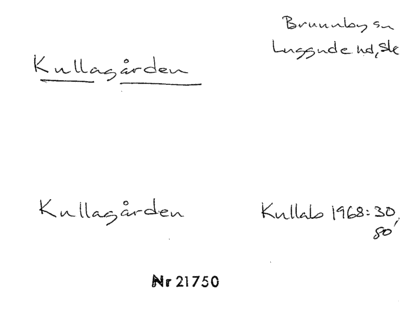 Brunnby sn
Luggude hd, Skå
Kullagården
Kullagården Kullabo 1968: 30,
80
Nr 21750